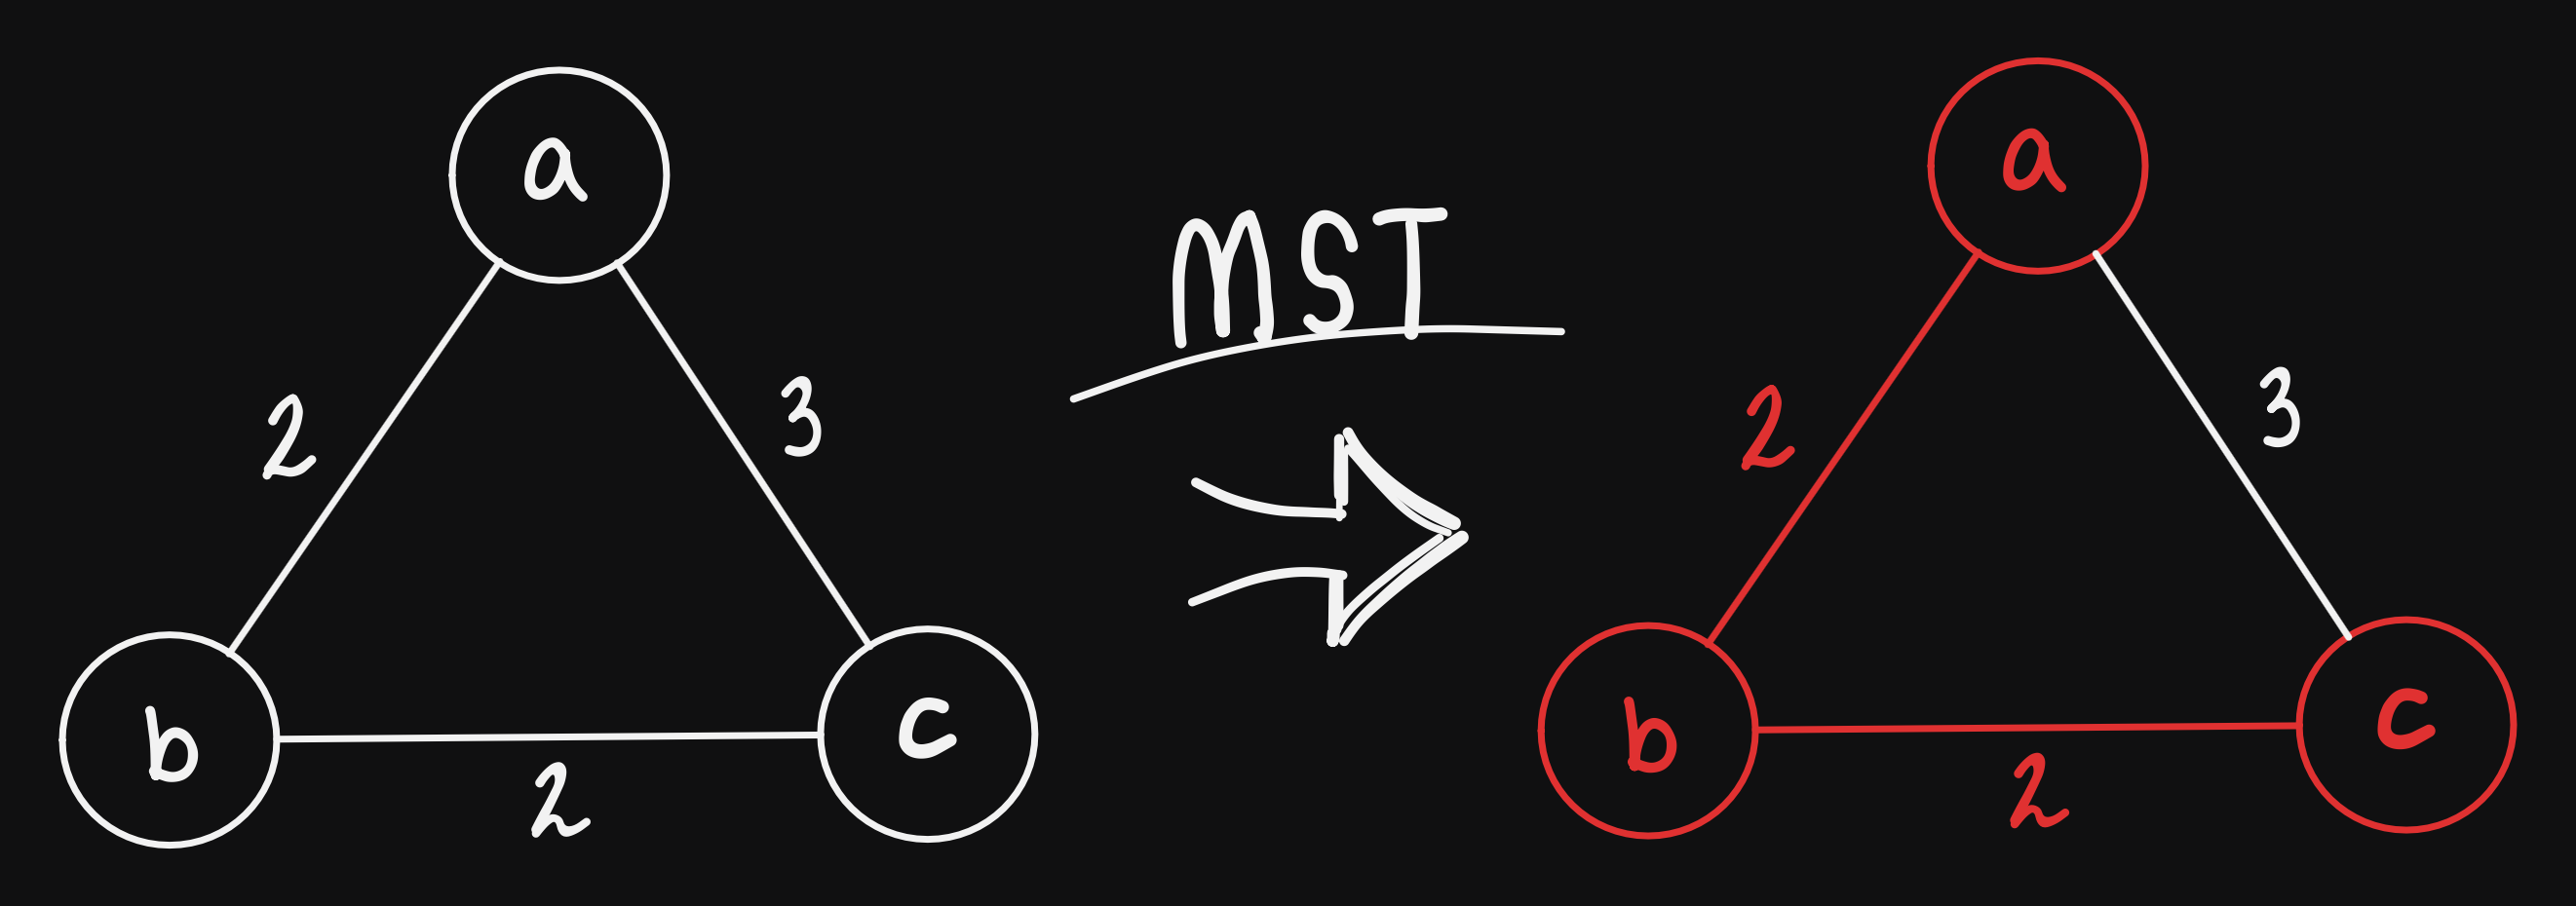 a
2
3
b
c
2
MST
a
2
3
b
c
2